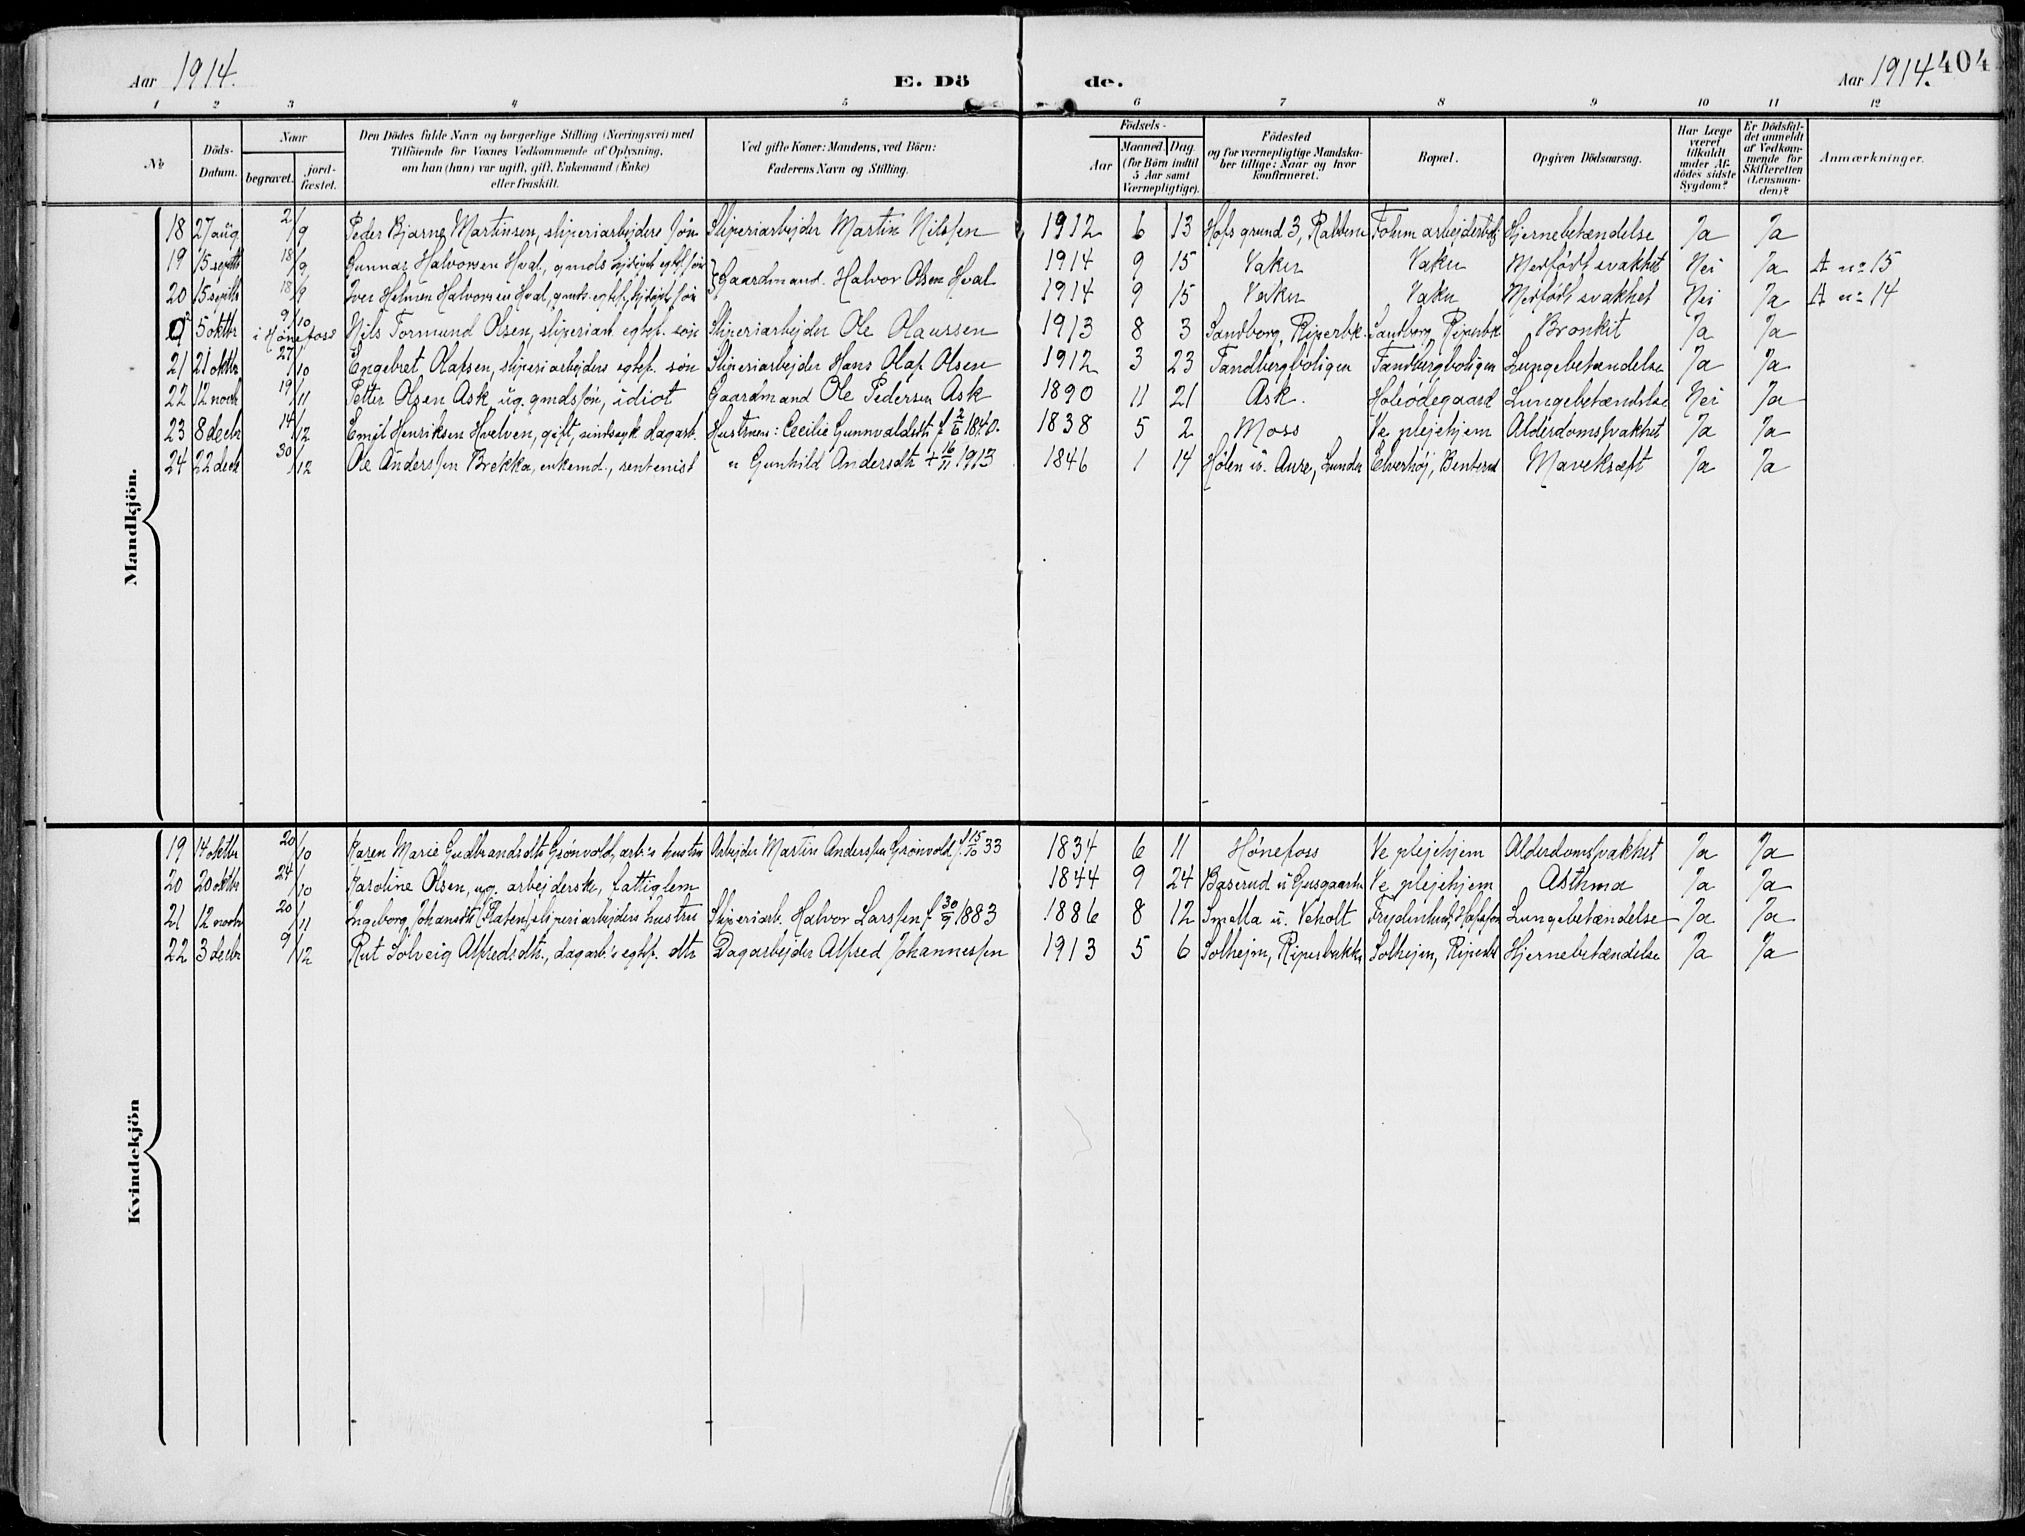 Aar 1914. E. Dö de. Aar 1914. 404
1 2 3 4 5 6 7 8 9 10 11 12
No
Döds-Datum.
Naar
begravet.
jord-fæstet.
Den Dödes fulde Navn og borgerlige Stilling (Næringsvei) med
Tilföiende for Voxnes Vedkommende af Oplysning,
om han (hun) var ugift, gift, Enkemand (Enke)
eller fraskilt.
Ved gifte Koner: Mandens, ved Börn:
Faderens Navn og Stilling.
Födsels-
Aar
Maaned. Dag.
(for Börn indtil
5 Aar samt
Værnepligtige).
Födested
og for værnepligtige Mandska-
ber tillige: Naar og hvor
konfirmeret.
Bopæl.
Opgiven Dödsaarsag.
Har Læge
været
tilkaldt
under Af-
dödes sidste
Sygdom?
Er Dödsfal-
det anmeldt
af Vedkom-
mende for
Skifteretten
(Lensman-
den)?
Anmærkninger.
Mandkjön.
18 27 aug 2/9 Peder Bjarne Martinsen, sliperiarbejders søn Sliperiarbejder Martin Nilssen 1912 6 13 Hofs grund 3, Hjernebetændelse Ja Ja
19 15 septb 18/9 Gunnar Halvorsen Hval, gmds søn Gaardmand Halvor Olsen Hval 1914 9 15 Vaker Vaker Medfødt svakhet Nei Ja A no 15
20 15 septb 18/9 Iver Helmen Halvorsen Hval, gmds søn 1914 9 15 Vaker Vaker Medfødt svakhet Nei Ja A no 14
5 oktbr 9/10 i Hönefoss Nils Tormund Olsen, sliperiarb. egtef. søn Sliperiarbejder Ole Olaussen 1913 8 3 Sandborg, Riperbk Sandborg, Riperbk Bronkit Ja Ja
21 21 oktbr 27/10 Engebret Olafsen, sliperiarbejders egtef. søn Sliperiarbejder Hans Olaf Olsen 1912 3 23 Tandbergboligen Tandbergboligen Lungebetændelse Ja Ja
22 12 novb 19/11 Petter Olsen Ask, ug. gmdssøn, idiot Gaardmand Ole Pedersen Ask 1890 11 21 Ask. Holeødegaard Lungebetændelse Nei Ja
23 8 decb 14/12 Emil Henriksen Hvelven, gift, sindssyk dagarb. Hustruen: Cecilie Gunnvaldsdtr f. 2/6 1840. 1838 5 2 Moss Ve plejehjem Alderdomssvakhet Ja Ja
24 22 decb 30/12 Ole Anderssen Brekka, enkemd., rentenist " Gunhild Andersdtr + 16/11 1913 1846 1 14 Hølen u. Aure, Lunder Elverhøj, Benterud Mavekræft Ja Ja
Kvindekjön
19 14 oktbr 20/10 Karen Marie Gudbrandsdtr Grønvold, arb.s hustru Arbejder Martin Anderssen Grønvold f. 15/10 33 1834 6 11 Hønefoss Ve plejehjem Alderdomssvakhet Ja Ja
20 20 oktbr 24/10 Karoline Olsen, ug. arbejderske, fattiglem 1844 9 24 Baserud u Ve plejehjem Asthma Ja Ja
21 12 novb 20/11 Ingeborg Johansdtr sliperiarbejders hustru Sliperiarb. Halvor Larssen f. 30/9 1883 1886 8 12 Smetta u. Veholt Frydenlund, Lungebetændelse Ja Ja
22 3 decbr 9/12 Rut Solveig Alfredsdtr., dagarb.s egtef. dtr Dagarbejder Alfred Johannessen 1913 5 6 Solhejm, Riperbakken Solhejm, Riperbk Hjernebetændelse Ja Ja